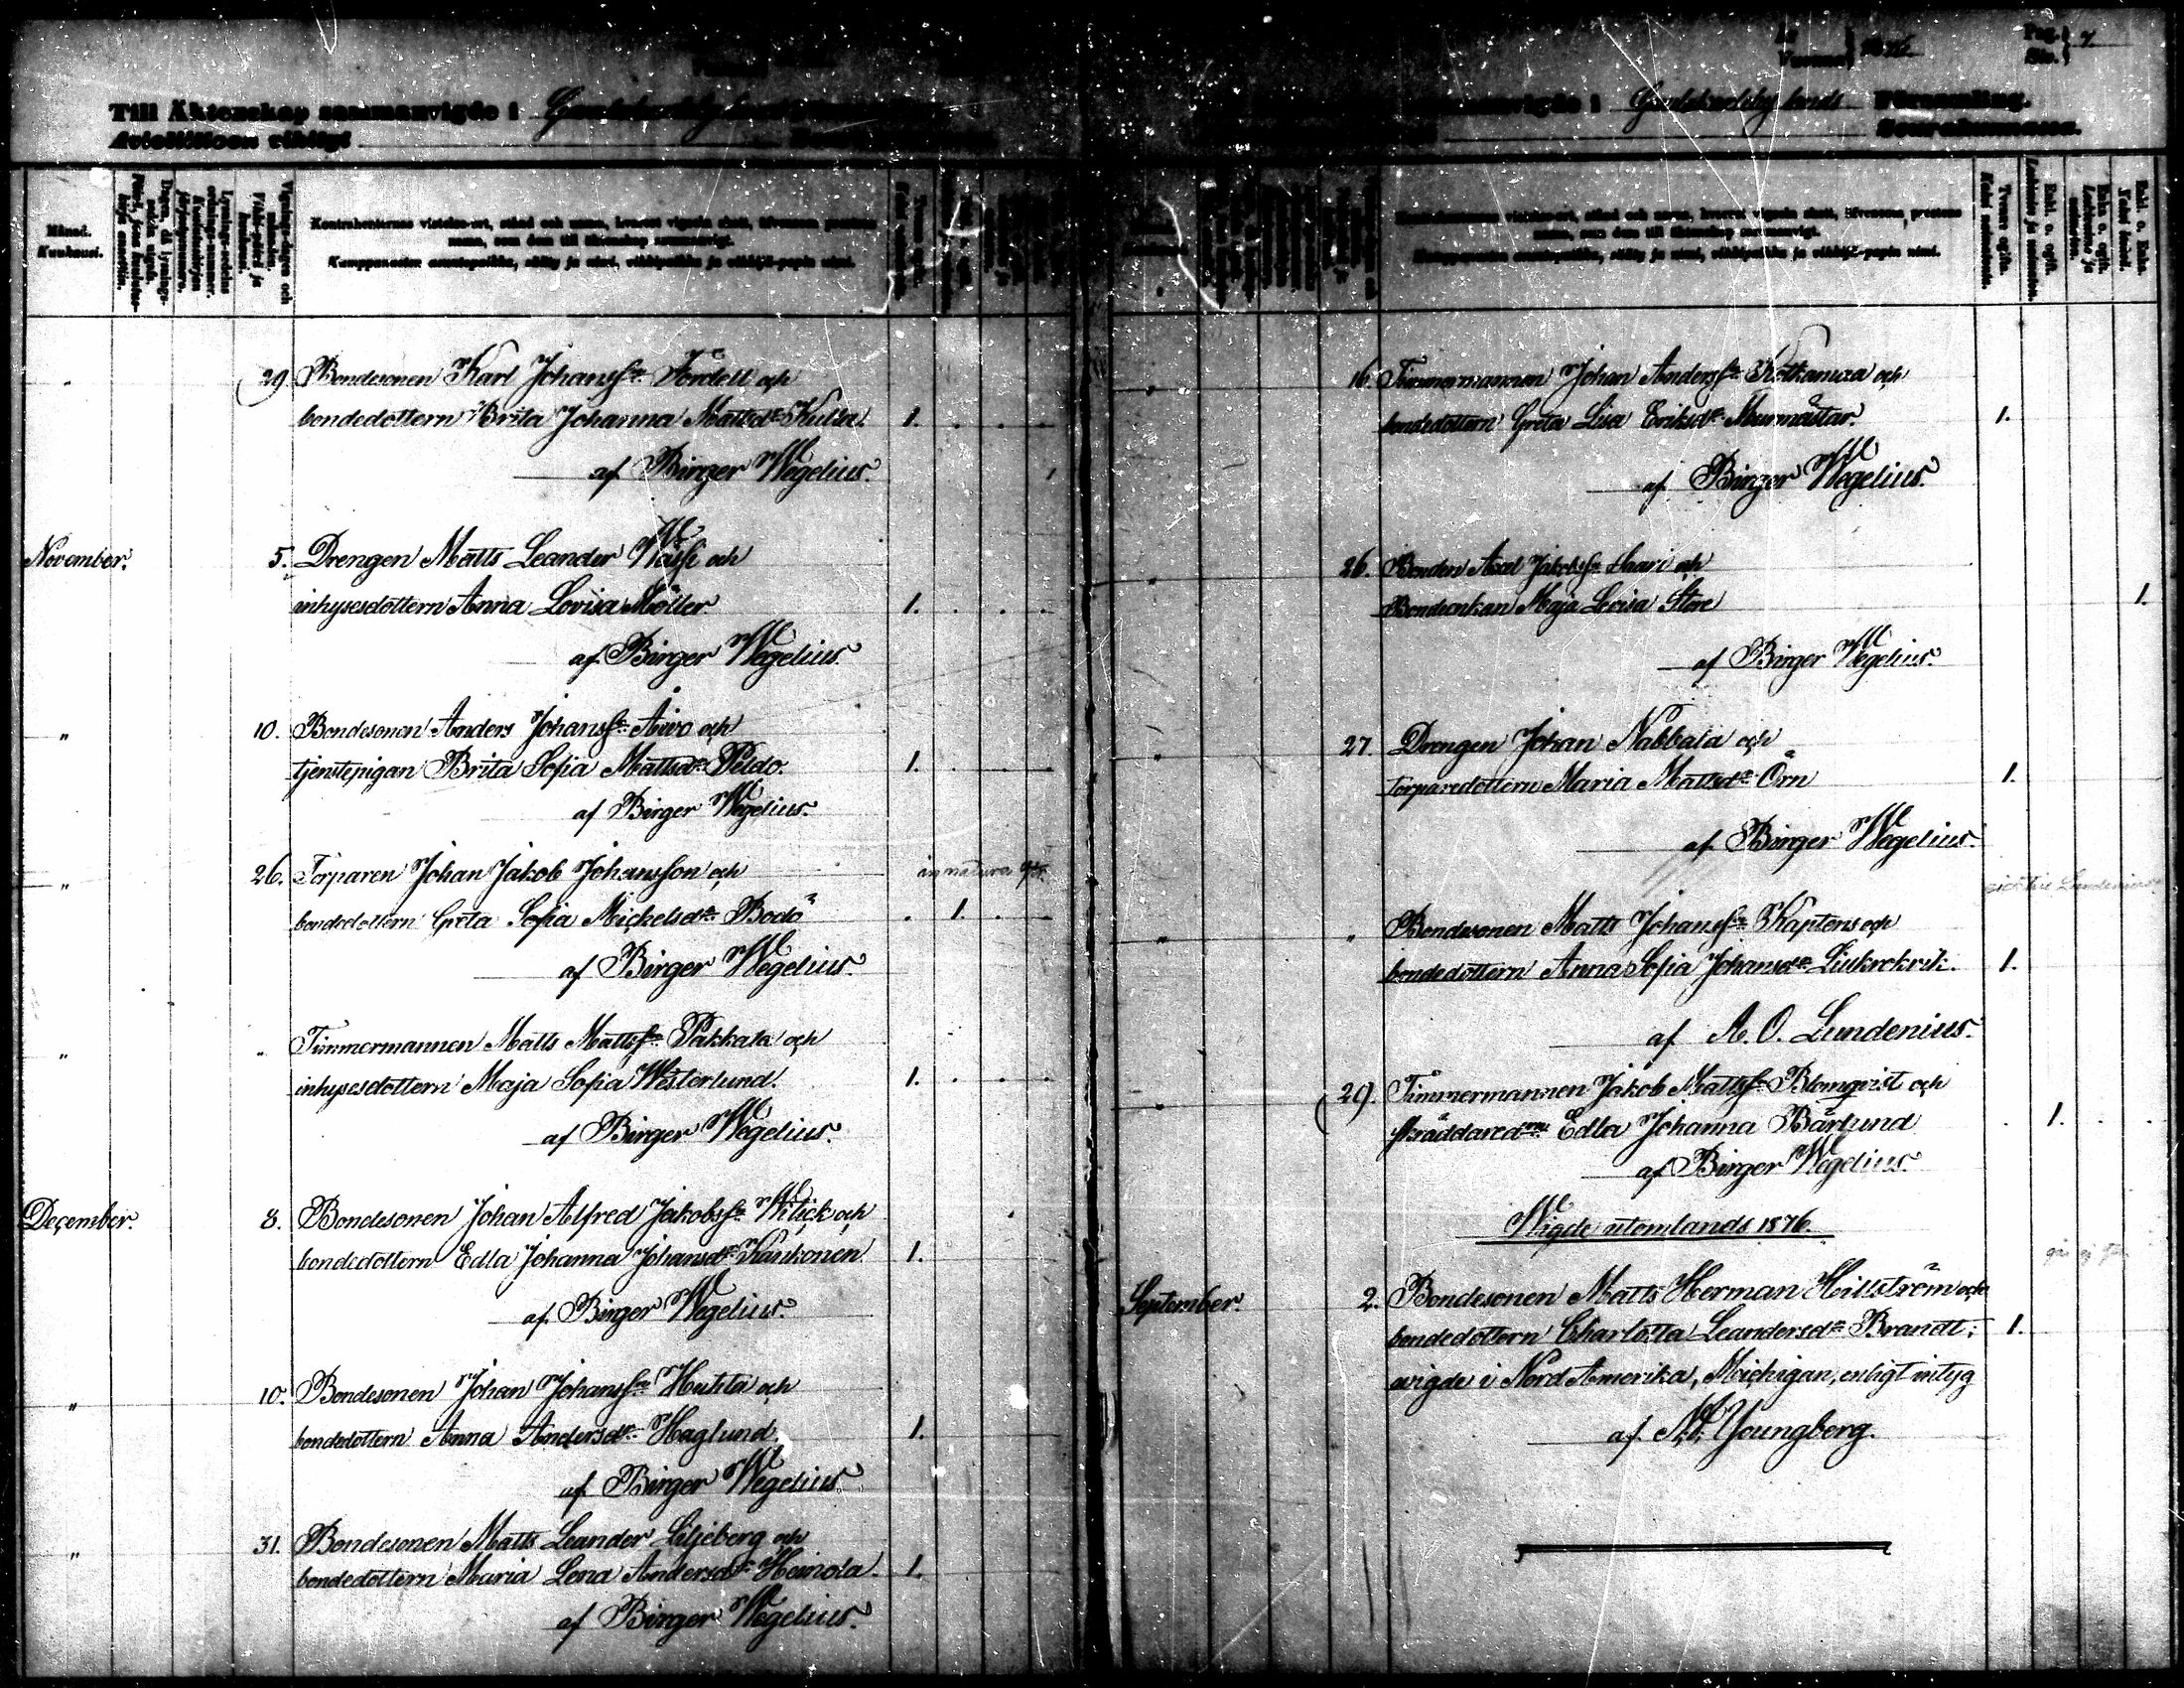 Till Äktenskap sammanvigde i
Avioliittoon vihityt
Månad.
Kuukausi.
Kontrahenternas vistelse-ort, stånd och namn, hvarest vigseln skett, äfvensom prestens
namn, som dem till äktenskap sammanvigt.
Kumppanusten asuntopaikka, sääty ja nimi, vihkipaikka ja vihkijä-papin nimi.
29. Bondesonen Karl Johansson Fordell och
bondedottern Brita Johanna Mattsdr 1.
af Birger Wegelius.
November. 5. Drengen Matts Leander och
inhysesdottern Anna Lovisa Möller 1.
af Birger Wegelius.
" 10. Bondesonen Anders Johansson Aivo och
tjenstepigan Brita Sofia Mattsdr Peldo. 1.
af Birger Wegelius.
" 26. Torparen Johan Jakob Johansson och
bondedottern Greta Sofia Mickelsdr Bodö 1.
af Birger Wegelius.
" " Timmermannen Matts Mattsson Pakkala och
inhysesdottern Maja Sofia Westerlund. 1.
af Birger Wegelius.
December. 8. Bondesonen Johan Alfred Jakobsson Witick och
bondedottern Edla Johanna Johansdr Kaukonen 1.
af Birger Wegelius.
" 10. Bondesonen Johan Johansson Huhta och
bondedottern Anna Andersdr Haglund. 1.
af Birger Wegelius.
" 31. Bondesonen Matts Leander Liljeberg och
bondedottern Maria Lena Andersdr Heinola. 1.
af Birger Wegelius.
År
Vuonna 1876
Pag.
Siv. 7.
Gamlakarleby lands Församling.
Seurakunnassa.
Kontrahenternas vistelse-ort, stånd och namn, hvarest vigseln skett, äfvensom prestens
namn, som dem till äktenskap sammanvigt.
Kumppanusten asuntopaikka, sääty ja nimi, vihkipaikka ja vihkijä-papin nimi.
" 16. Timmermannen Johan Andersson Kotkamaa och
bondedottern Greta Lisa Eriksdr Murmästar. 1.
af Birger Wegelius.
" 26. Bonden Axel Jakobsson Haari och
Bondeenkan Maja Lovisa Store 1.
af Birger Wegelius.
" 27. Drengen Johan Nabbala och
torparedottern Maria Mattsdr Örn 1.
af Birger Wegelius.
" " Bondesonen Matts Johansson Kaptens och
bondedottern Anna Sofia Johansdr 1.
af A. O. Lundenius.
" 29. Timmermannen Jakob Mattsson Blomqvist och
skräddaredrn Edla Johanna Bärlund 1.
af Birger Wegelius.
Wigde utomlands 1876.
September. 2. Bondesonen Matts Herman Hillström och
bondedottern Charlotta Leandersdr Brandt; 1.
wigde i Nord Amerika, Michigan, enligt intyg
af Youngberg.